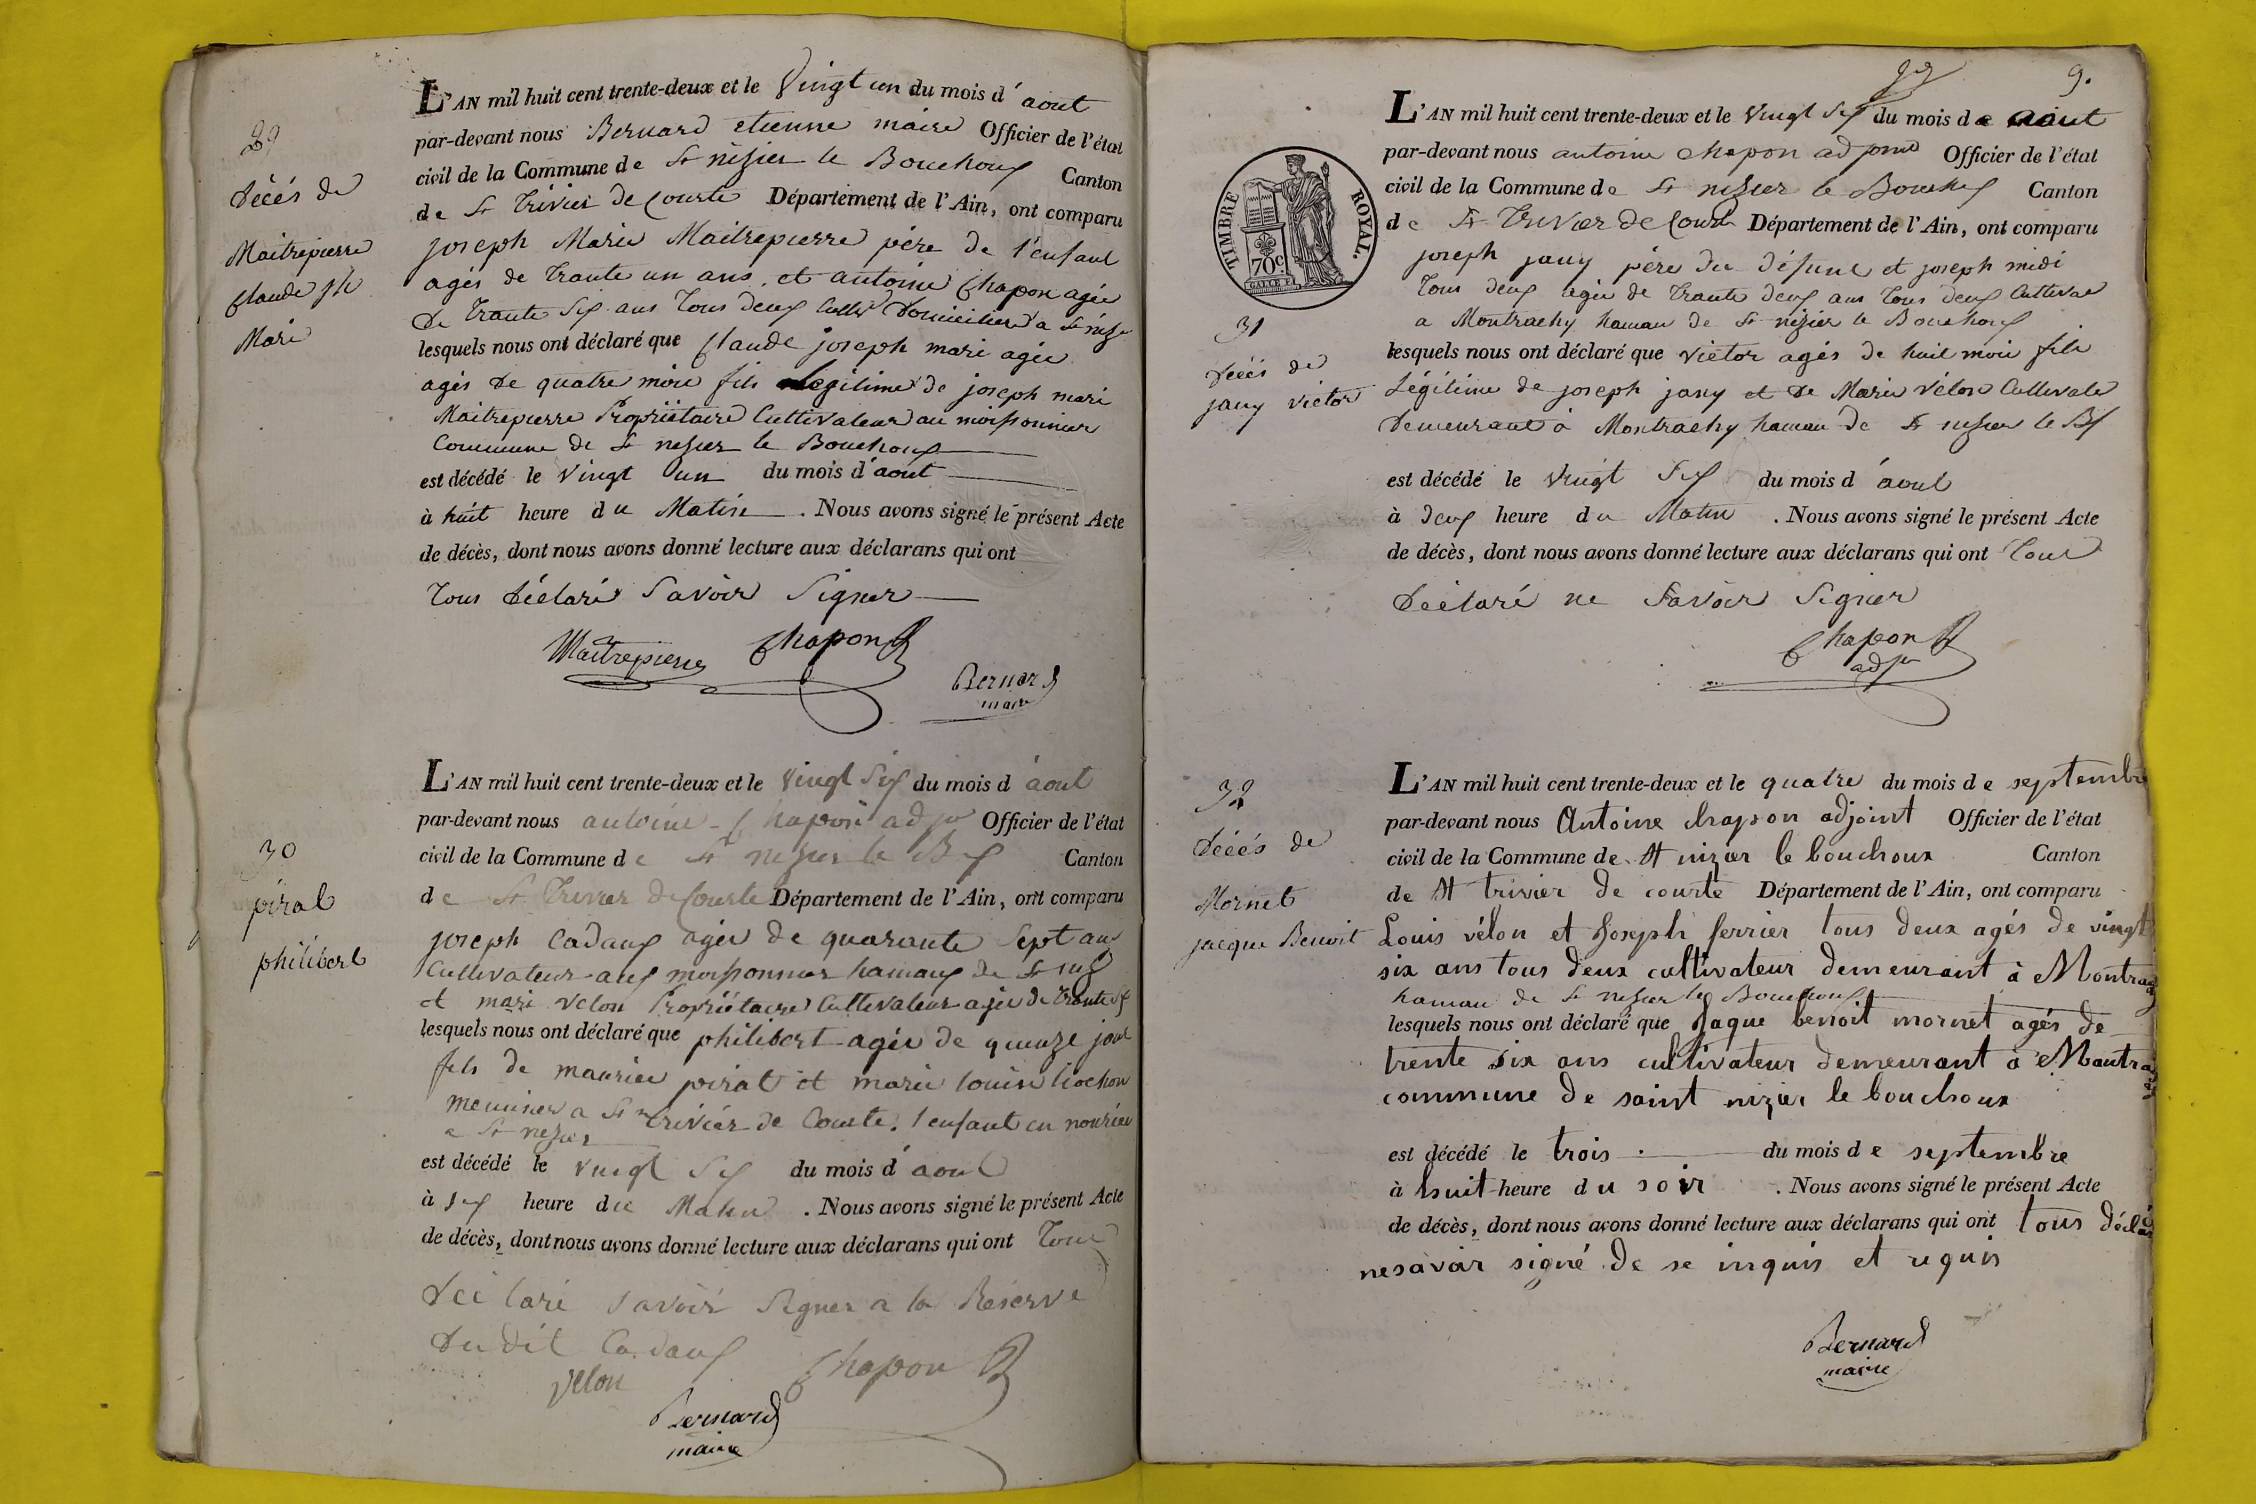 29
Décés de
Maitrepierre
Claude jh
Marie
L'AN mil huit cent trente-deux et le Vingt un du mois d'aout
par-devant nous Bernard etienne maire Officier de l'état
civil de la Commune de St nizier le Bouchoux Canton
de St Trivier de Courte Département de l'Ain, ont comparu
joseph Marie Maitrepierre pére de l'enfant
agés de trante un ans et antoine Chapon agée
de trante six ans tous deux Cultr Domiciliers a St nizier
lesquels nous ont déclaré que Claude joseph mari agée
agés de quatre mois fils legitime de joseph mari
Maitrepierre Propriétaire Cultivateur au moissonnier
Commune de St nesier le Bouchoux
est décédé le vingt un du mois d'aout
à huit heure du Matin. Nous avons signé le présent Acte
de décès, dont nous avons donné lecture aux déclarans qui ont
tous déclaré savoir signer
Maitrepierre Chapon
Bernard
maire
30
piral
philibert
L'AN mil huit cent trente-deux et le vingt six du mois d'aout
par-devant nous antoine Chapon adjt Officier de l'état
civil de la Commune de St nesier le Bx Canton
de St Trivier de Courte Département de l'Ain, ont comparu
joseph Cadaux agée de quarante sept ans
Cultivateur aux moissonnier hamaux de St niz
et mari velon Propriétaire Cultivateur agée de trante six
lesquels nous ont déclaré que philibert agée de quinze jour
fils de maurice pirat et marie louise liochon
meunier a St trivier de Courte, l'enfant en nourice
a St nesier
est décédé le vingt six du mois d'aout
à six heure du Matin. Nous avons signé le présent Acte
de décès, dont nous avons donné lecture aux déclarans qui ont tous
déclaré savoir signer a la Reserve
du dit Cadaux
velon Chapon
Bernard
maire
9.
TIMBRE ROYAL.
70c
31
Décés de
jany victor
L'AN mil huit cent trente-deux et le vingt six du mois de aout
par-devant nous antoine Chapon adjoint Officier de l'état
civil de la Commune de St nesier le Bouchoux Canton
de St Trivier de Courte Département de l'Ain, ont comparu
joseph jany pére du défunt et joseph midi
tous deux agée de trante deux ans tous deux Cultivate
a Montrachy hamau de St nizier le Bouchoux
lesquels nous ont déclaré que victor agés de huit mois fils
légitime de joseph jany et de Marie vélon Cultivate
demeurant à Montrachy hamau de St nesier le Bx
est décédé le vingt six du mois d'aout
à deux heure du Matin. Nous avons signé le présent Acte
de décès, dont nous avons donné lecture aux déclarans qui ont tous
déclaré ne savoir signer
Chapon
adjt
32
Décés de
Mornet
jacque Benoit
L'AN mil huit cent trente-deux et le quatre du mois de septembre
par-devant nous Antoine chapon adjoint Officier de l'état
civil de la Commune de St nizier le bouchoux Canton
de St trivier de courte Département de l'Ain, ont comparu
Louis vélon et Joseph ferrier tous deux agés de vingt
six ans tous deux cultivateur demeurant à Montrac
hamau de St nesier le Bouchoux
lesquels nous ont déclaré que Jaque benoit mornet agés de
trente six ans cultivateur demeurant à Montra
commune de saint nizier le bouchoux
est décédé le trois du mois de septembre
à huit heure du soir. Nous avons signé le présent Acte
de décès, dont nous avons donné lecture aux déclarans qui ont tous déclaré
ne savoir signé de se inquis et requis
Bernard
maire